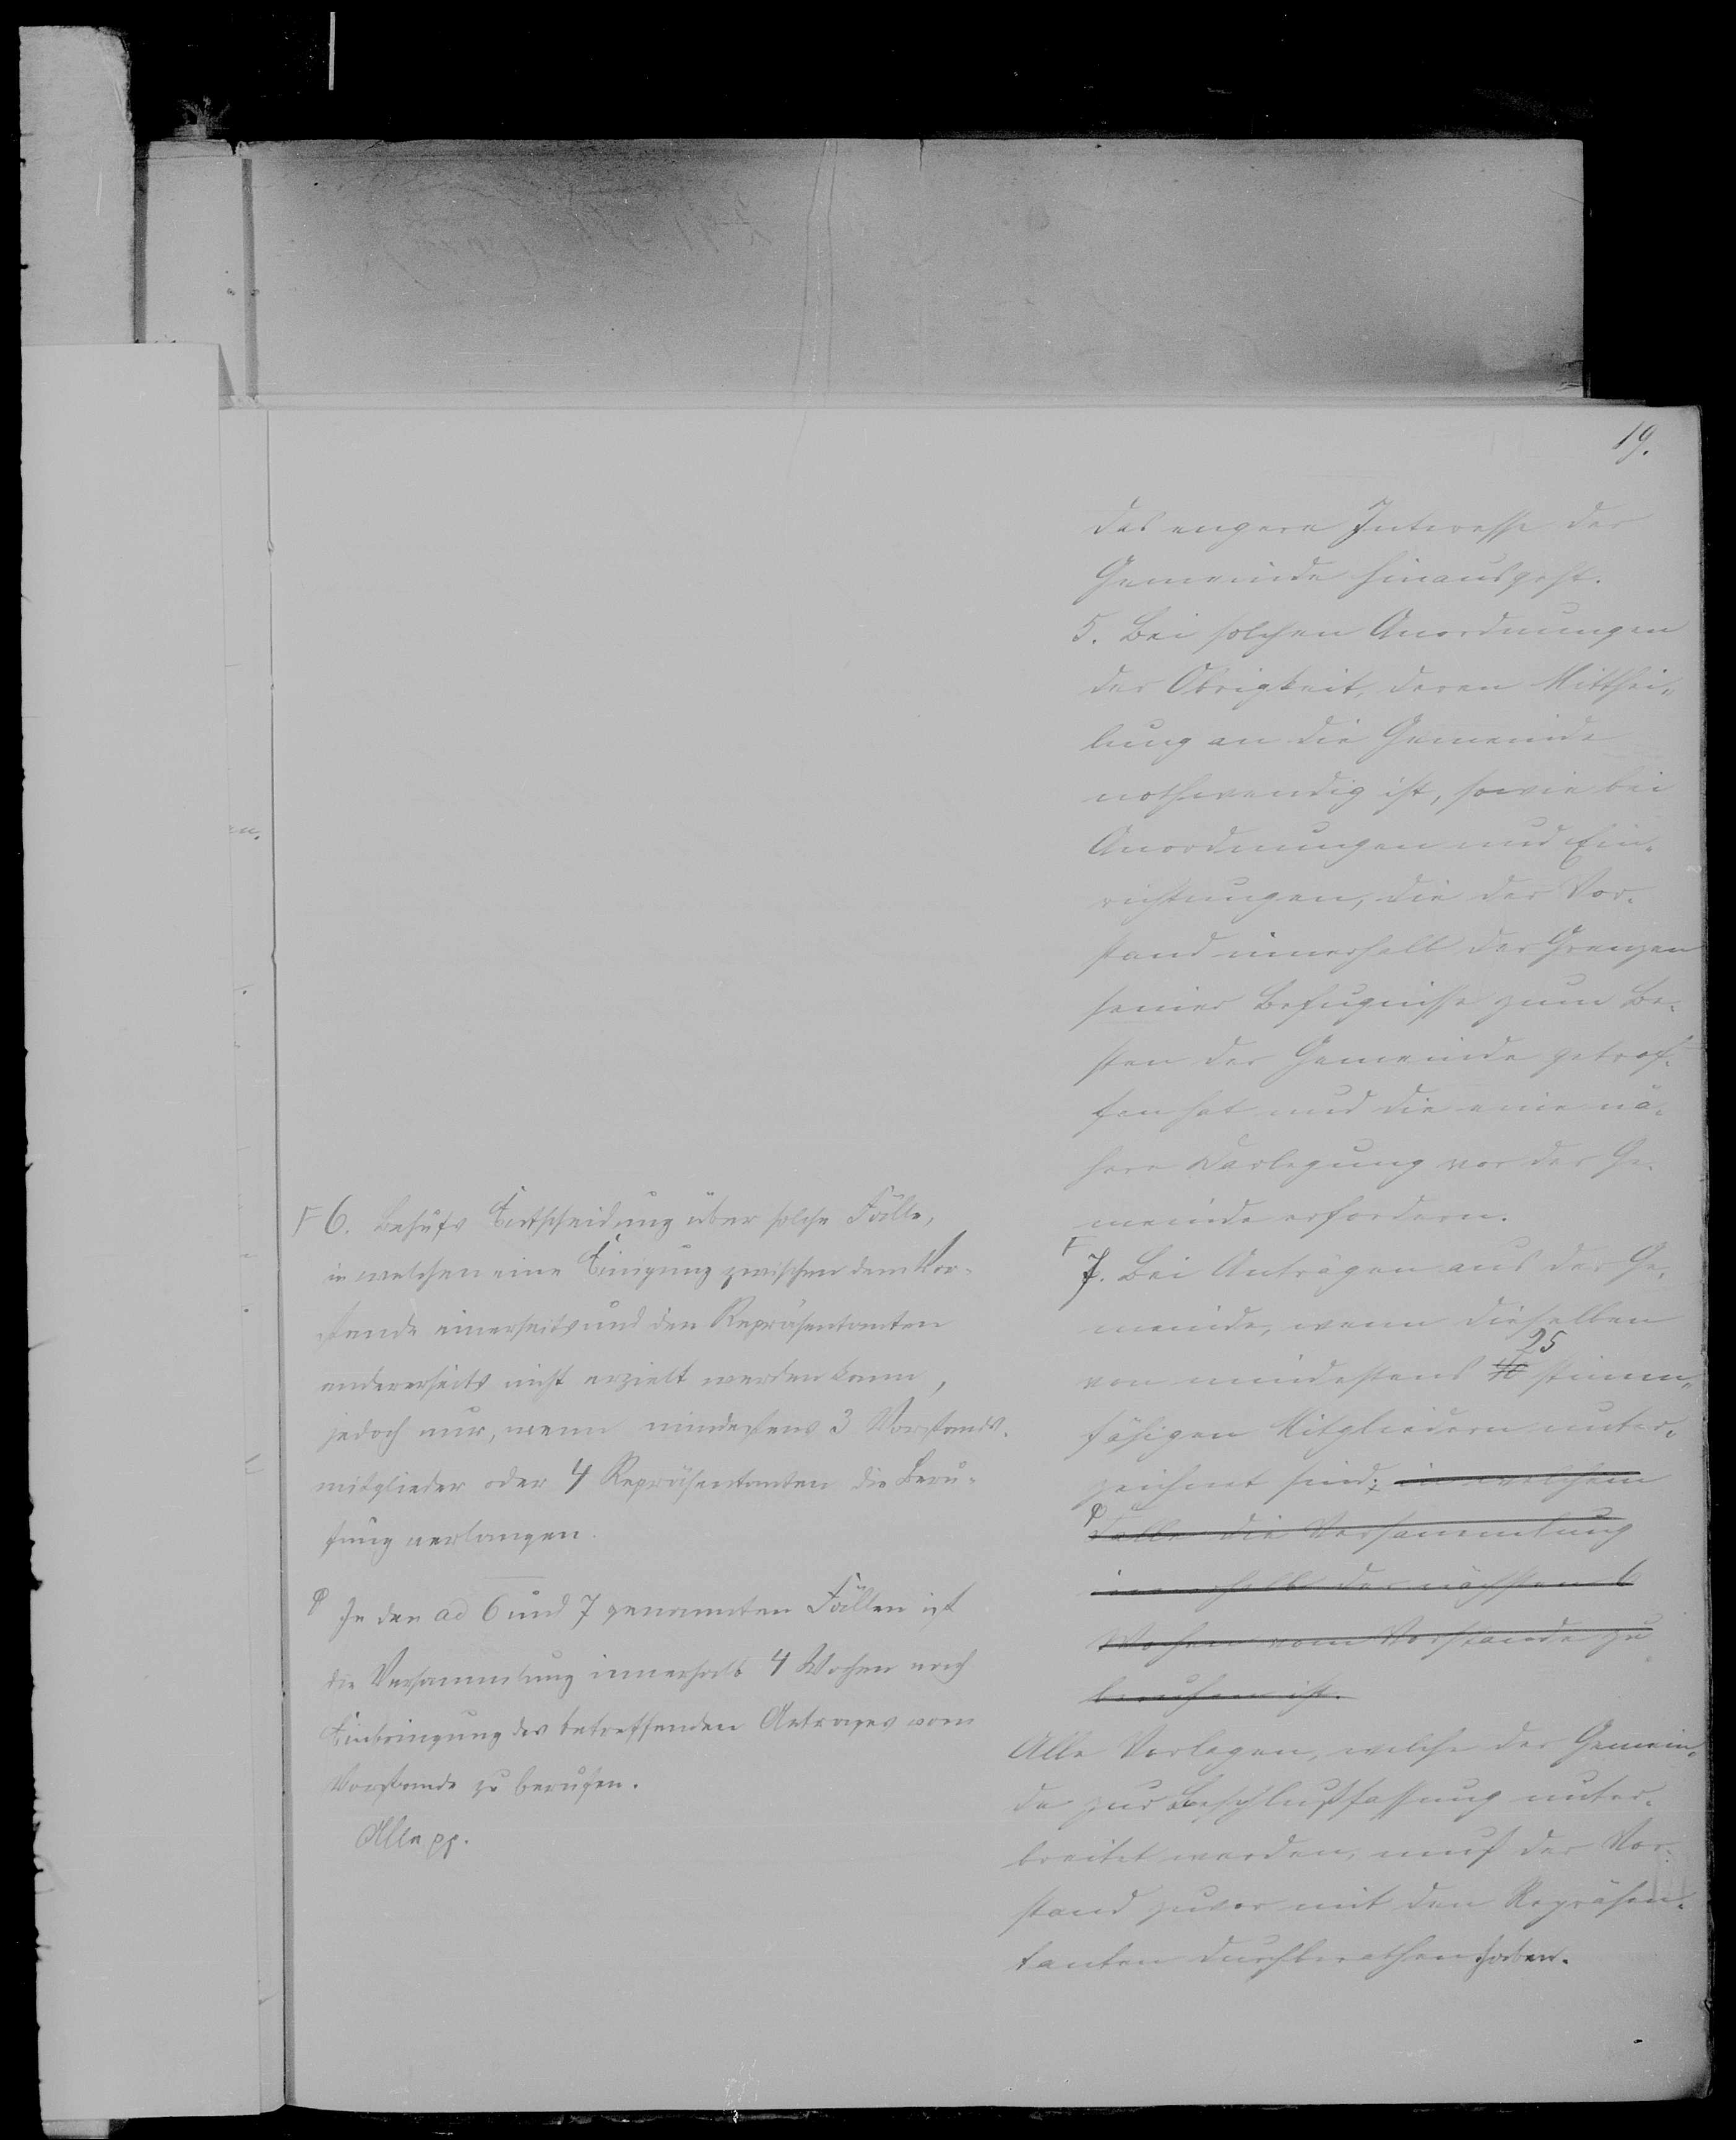 19.
das engere Interesse der
Gemeinde hinausgeht.
5. Bei solchen Anordnungen
der Obrigkeit, deren Mitthei„
lung an die Gemeinde
nothwendig ist, sowie bei
Anordnungen und Ein„
richtungen, die der Vor„
stand innerhalb der Grenzen
seiner Befugnisse zum Be„
sten der Gemeinde getrof„
fen hat und die eine nä„
here Darlegung vor der Ge„
meinde erfordern.
Γ
7. Bei Anträgen aus der Ge„
meinde, wenn dieselben
25
von mindestens stimm„
fähigen Mitgliedern unter„
zeichnet sind; in welchem
φ
Falle die Versammlung
innerhalb der nächsten 6
Wochen vom Vorstande zu
berufen ist.
Alle Vorlagen, welche der Gemein„
de zur Beschlußfassung unter„
breitet werden, muß der Vor„
stand zuvor mit den Repräsen„
tanten durchberathen haben.
Γ 6. Behufs Entscheidung über solche Fälle,
in welchen eine Einigung zwischen dem Vor-
stande einerseits und den Repräsentanten
andererseits nicht erzielt werden kann,
jedoch nur, wenn mindestens 3 Vorstands-
mitglieder oder 4 Repräsentanten die Beru-
fung verlangen.
φ In den ad 6 und 7 genannten Fällen ist
die Versammlung innerhalb 4 Wochen nach
Einbringung des betreffenden Antrages vom
Vorstande zu berufen.
Alle pp.
en.